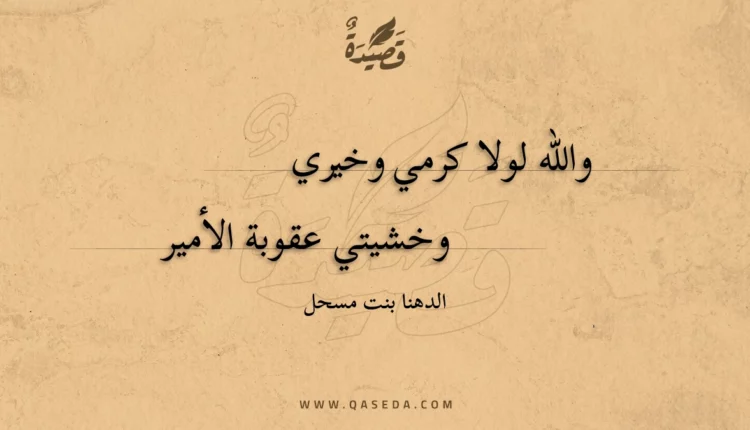 قَصِيدَةٌ
والله لولا كرمي وخيري
وخشيتي عقوبة الأمير
الدهنا بنت مسحل
WWW.QASEDA.COM